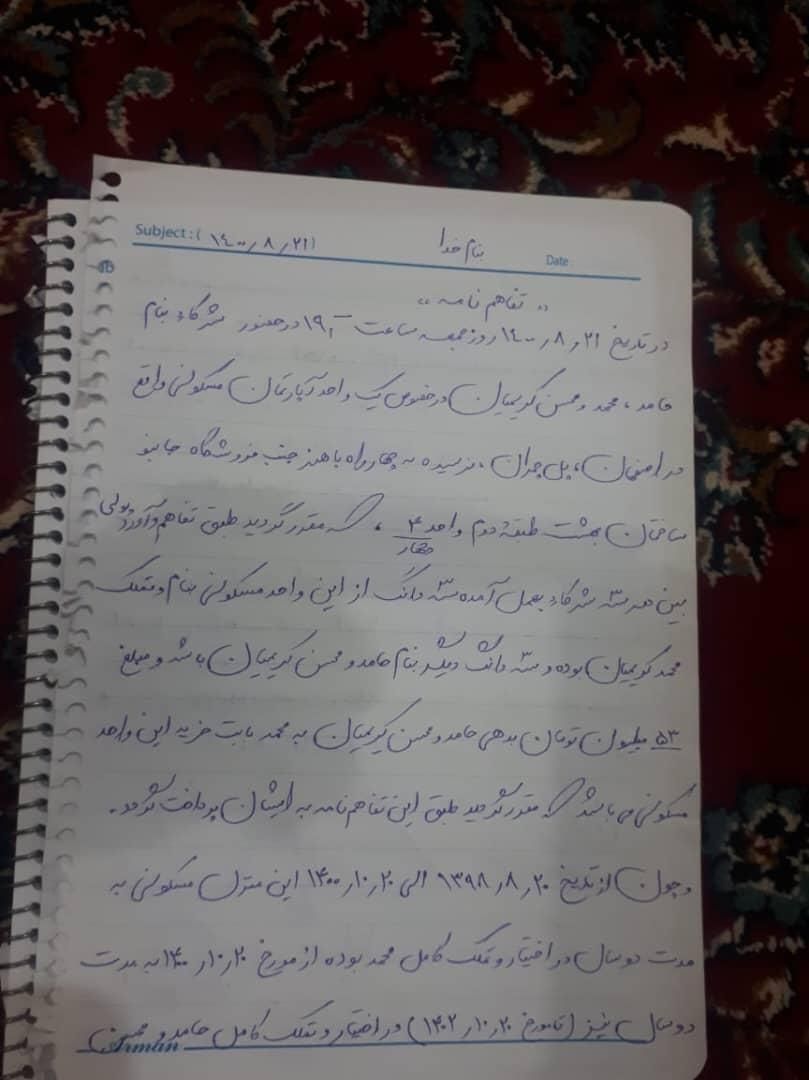 Subject: (۱۴۰۰٫۸٫۲۱)
بنام خدا
Date
«تفاهم نامه»
در تاریخ ۱۴۰۰٫۸٫۲۱ روز جمعه ساعت ۱۹ در حضور شرکاء بنام
حامد، محمد و محسن کریمیان در خصوص یک واحد آپارتمان مسکونی واقع
در اصفهان، پل چمران، نرسیده به چهارراه باهنر جنب فروشگاه جانبو
ساختمان بهشت طبقه دوم واحد ۴ چهار، که مقرر گردید طبق تفاهم و
بین هر سه شرکاء بعمل آمده سه دانگ از این واحد مسکونی بنام و تملک
محمد کریمیان بوده و سه دانگ دیگر بنام حامد و محسن کریمیان باشد و مبلغ
۵۳ میلیون تومان بدهی حامد و محسن کریمیان به محمد بابت خرید این واحد
مسکونی می باشد که مقرر گردید طبق این تفاهم نامه به ایشان پرداخت گردد.
و چون از تاریخ ۱۳۹۸٫۸٫۲۰ الی ۱۴۰۰٫۱۰٫۲۰ این منزل مسکونی به
مدت دو سال در اختیار و تملک کامل محمد بوده از مورخ ۱۴۰۰٫۱۰٫۲۰ به مدت
دو سال نیز (تا مورخ ۱۴۰۲٫۱۰٫۲۰) در اختیار و تملک کامل حامد و محسن